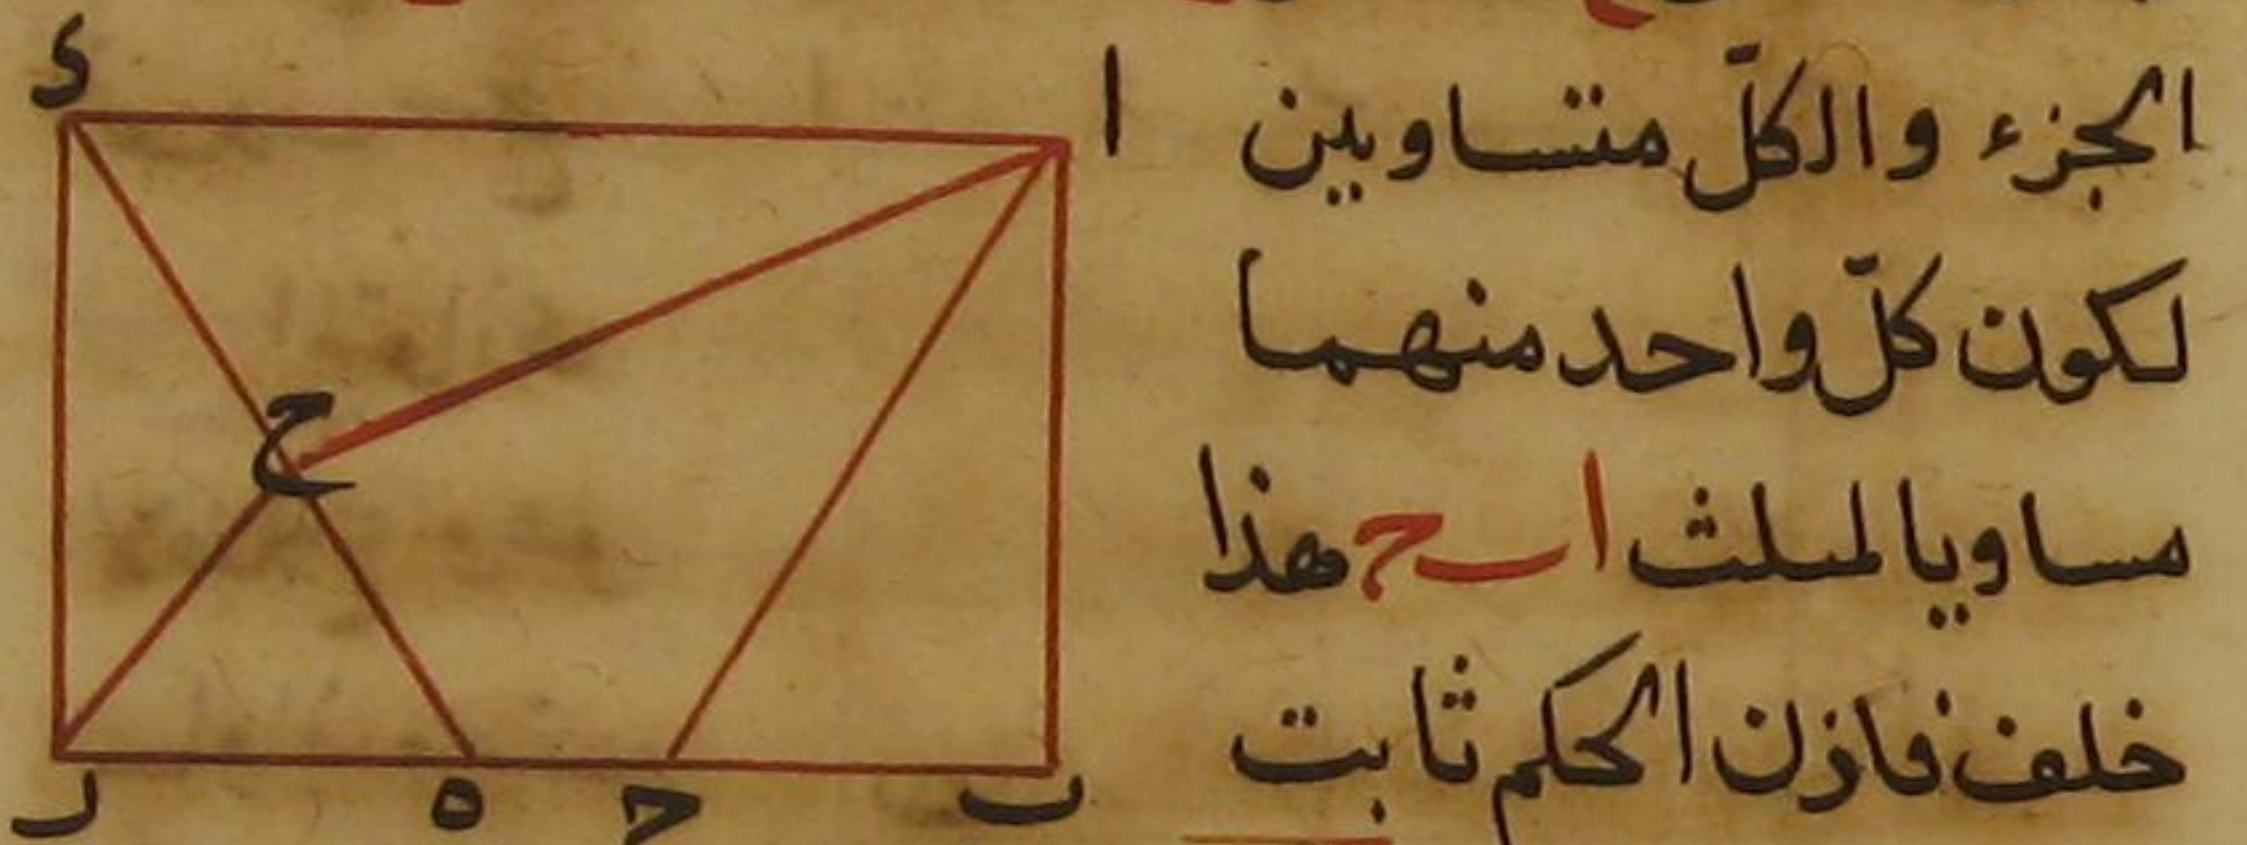 الجزء والكلّ متساوين
لكون كلّ واحد منهما
مساويا لمثلث ا ب ح هذا
خلف فاذن الحكم ثابت
د ا
ح
ر ه ح ب